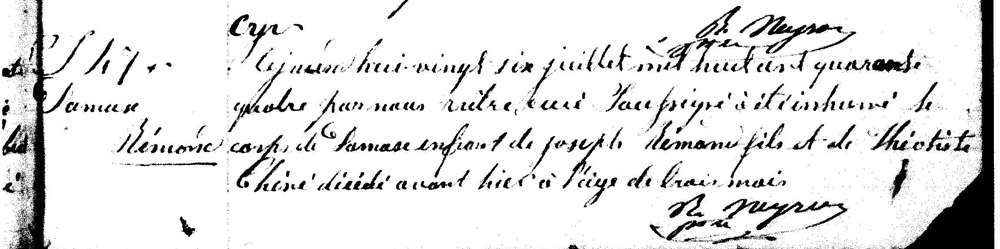 Cyr
R. Neyron
ptre
S 47.
Damase
Rémond
Ajourd hui vingt six juillet mil huit cent quarante
quatre par nous prêtre, curé soussigné a été inhumé le
corps de Damase enfant de joseph Rémond fils et de Théotiste
Chéné décédé avant hier à l'age de trois mois
R. Neyron
ptre